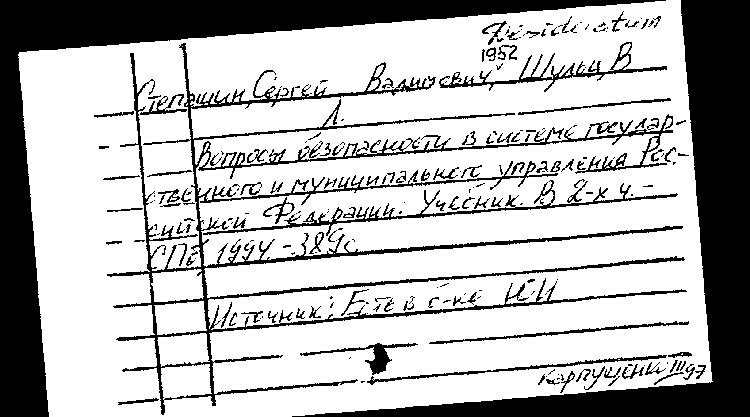 Desideratum
1952
Степашин, Сергей Вадимович, Шульц, В
Л.
Вопросы безопасности в системе государ-
ственного и муниципального управления Рос-
сийской Федерации: Учебник. В 2-х ч. -
СПб, 1994. - 389с
Источник: Есть в б-ке ЮИ
Карпущенко III 97